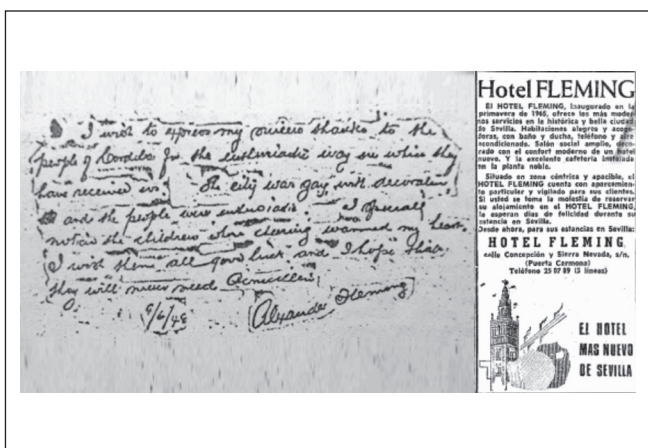 I wish to express my sincere thanks to the
people of Cordoba for the enthusiastic way in which they
have received us. The city was gay with decoration
and the people were enthusiastic. I
the children whose cheering warmed my heart.
I wish them all good luck and I hope that
they will never need Penicillin
Alexander Fleming
Hotel FLEMING
El HOTEL FLEMING, inaugurado en la
primavera de 1965, ofrece los más moder-
nos servicios en la histórica y bella ciudad
de Sevilla. Habitaciones alegres y acoge-
doras, con baño y ducha, teléfono y aire
acondicionado. Salón social amplio, deco-
rado con el confort moderno de un hotel
nuevo. Y la excelente cafetería instalada
en la planta noble.
Situado en zona céntrica y apacible, el
HOTEL FLEMING cuenta con aparcamien-
to particular y vigilado para sus clientes.
Si usted se toma la molestia de reservar
su alojamiento en el HOTEL FLEMING,
le esperan días de felicidad durante su
estancia en Sevilla.
Desde ahora, para sus estancias en Sevilla:
HOTEL FLEMING
calle Concepción y Sierra Nevada, s/n.
(Puerta Carmona)
Teléfono 25 07 89 (3 líneas)
EL HOTEL
MAS NUEVO
DE SEVILLA